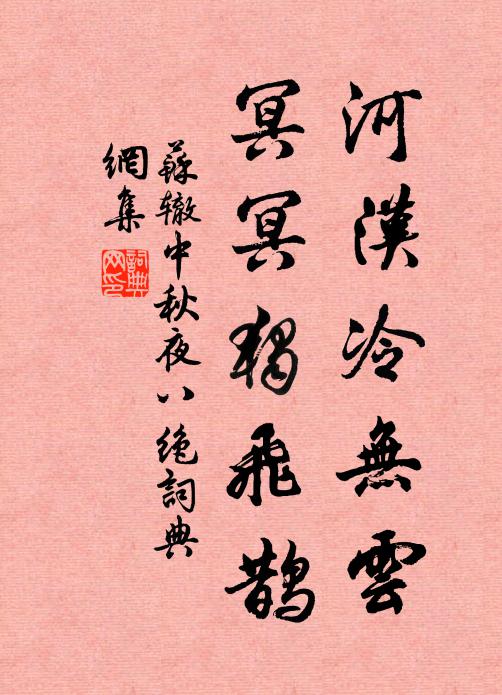 河漢冷無雲
冥冥獨飛鵲
蘇轍中秋夜八絶詞典
網集
詞典
网印